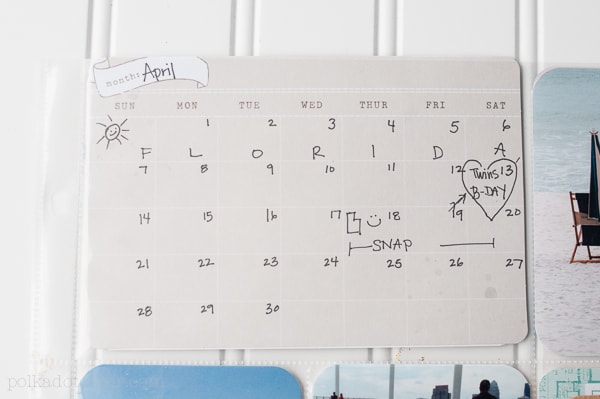 month: April
SUN MON TUE WED THUR FRI SAT
1 2 3 4 5 6
F L O R I D A
7 8 9 10 11 12 13
Twins
B-DAY
14 15 16 17 18 19 20
SNAP
21 22 23 24 25 26 27
28 29 30